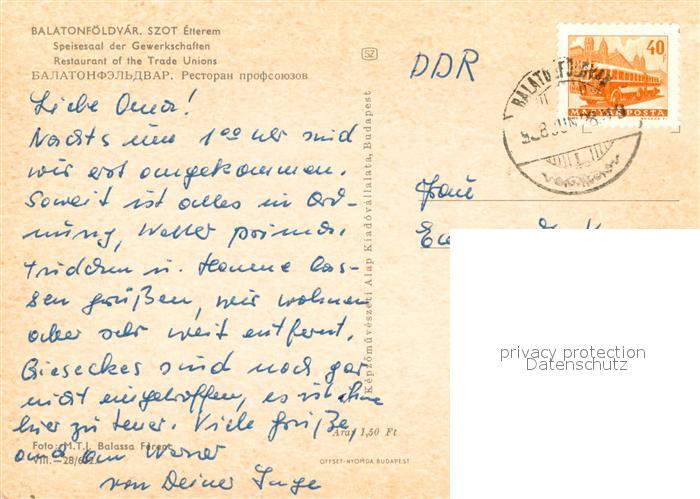 BALATONFÖLDVÁR. SZOT Étterem
Speisesaal der Gewerkschaften
Restaurant of the Trade Unions
БАЛАТОНФЭЛЬДВАР. Ресторан профсоюзов
Liebe Oma!
Nachts um 1⁰⁰ Uhr sind
wir erst angekommen.
Soweit ist alles in Ord-
nung, Wetter prima.
Tridchen u. Hanne las-
sen grüßen, wir wohnen
aber sehr weit entfernt.
Gieseckes sind noch gar
nicht eingetroffen, es ist ihne
hier zu teuer. Viele Grüße
auch an Werner
von Deiner Inge
Foto: M.T.I. Balassa Ferenc
VIII.—28/6
Ára: 1,50 Ft
OFFSET-NYOMDA BUDAPEST
Képzőművészeti Alap Kiadóvállalata, Budapest
SZ
DDR
40f
MAGYAR POSTA
BALATONFÖLDVÁR
Frau
privacy protection
Datenschutz